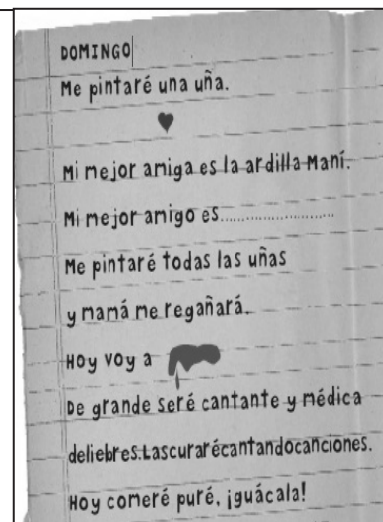 DOMINGO
Me pintaré una uña.
Mi mejor amiga es la ardilla Maní.
Mi mejor amigo es........................
Me pintaré todas las uñas
y mamá me regañará.
Hoy voy a
De grande seré cantante y médica
deliebres.Lascurarécantandocanciones.
Hoy comeré puré, ¡guácala!